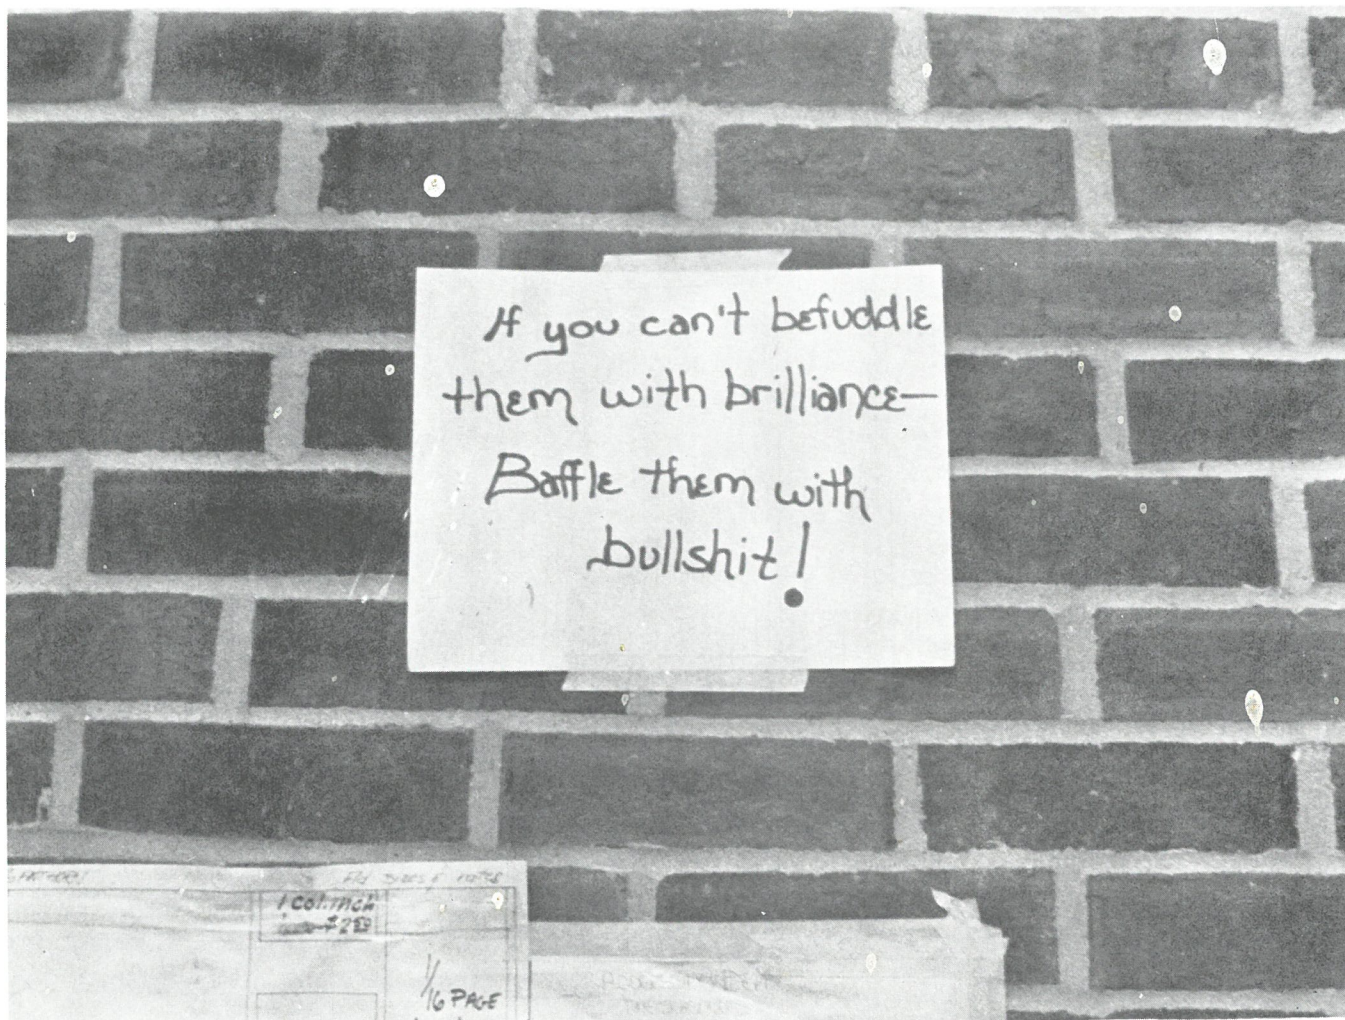 If you can't befuddle
them with brilliance—
Baffle them with
bullshit!
1 col. inch
$2.50
1/16 PAGE